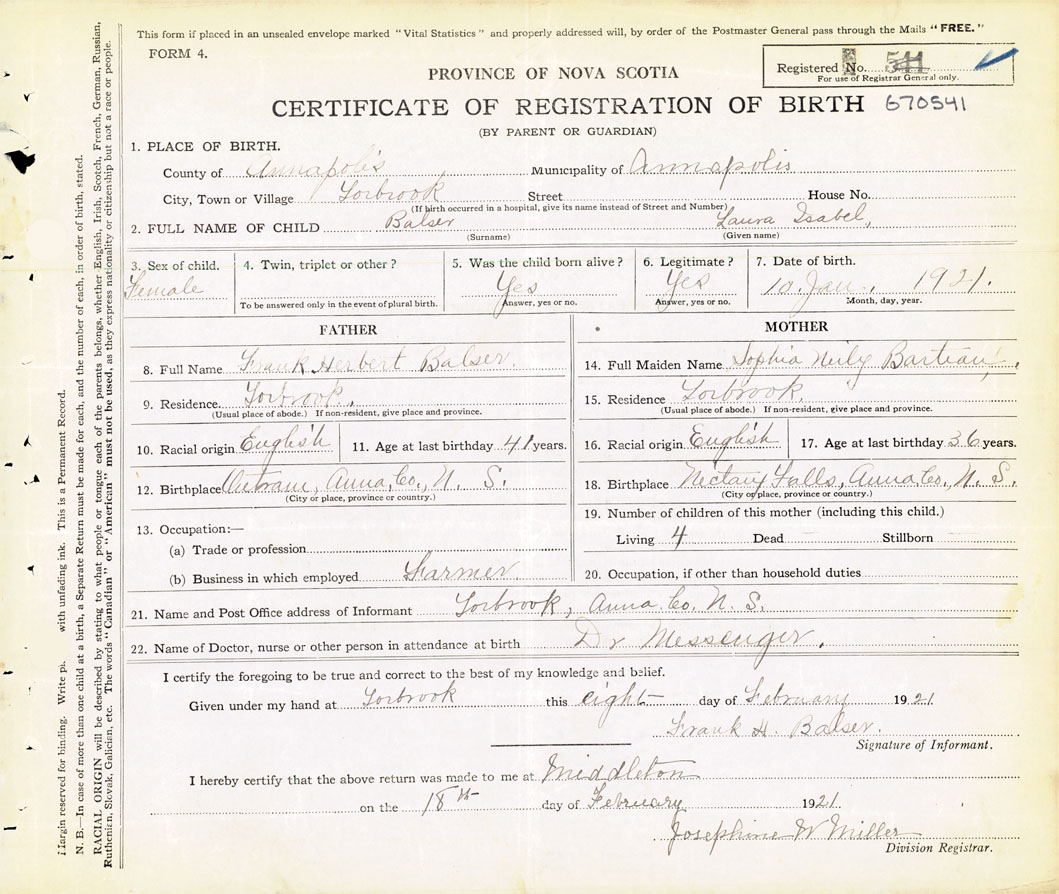 This form if placed in an unsealed envelope marked "Vital Statistics" and properly addressed will, by order of the Postmaster General pass through the Mails "FREE."
FORM 4.
Registered No. 541
For use of Registrar General only.
PROVINCE OF NOVA SCOTIA
CERTIFICATE OF REGISTRATION OF BIRTH 670541
(BY PARENT OR GUARDIAN)
1. PLACE OF BIRTH.
County of Annapolis Municipality of Annapolis
City, Town or Village Torbrook Street House No.
(If birth occurred in a hospital, give its name instead of Street and Number)
2. FULL NAME OF CHILD Balser Laura Isabel,
(Surname) (Given name)
3. Sex of child. 4. Twin, triplet or other? 5. Was the child born alive? 6. Legitimate? 7. Date of birth.
Female Yes Yes 10. Jan., 1921.
To be answered only in the event of plural birth. Answer, yes or no. Answer, yes or no. Month, day, year.
FATHER
8. Full Name Frank Herbert Balser.
9. Residence. Torbrook,
(Usual place of abode.) If non-resident, give place and province.
10. Racial origin English 11. Age at last birthday 41 years.
12. Birthplace Outram, Anna, Co., N. S.
(City or place, province or country.)
13. Occupation:—
(a) Trade or profession
(b) Business in which employed Farmer
MOTHER
14. Full Maiden Name Sophia Neily
15. Residence Torbrook,
(Usual place of abode.) If non-resident, give place and province.
16. Racial origin English 17. Age at last birthday 36 years.
18. Birthplace Nictaux Falls, Anna Co., N. S.
(City or place, province or country.)
19. Number of children of this mother (including this child.)
Living 4 Dead Stillborn
20. Occupation, if other than household duties
21. Name and Post Office address of Informant Torbrook, Anna. Co. N. S.
22. Name of Doctor, nurse or other person in attendance at birth Dr Messenger.
I certify the foregoing to be true and correct to the best of my knowledge and belief.
Given under my hand at Torbrook this eight day of February 1921
Frank H. Balser.
Signature of Informant.
I hereby certify that the above return was made to me at Middleton
on the 18th day of February 1921.
Josephine W Miller
Division Registrar.
Margin reserved for binding. Write with unfading ink. This is a Permanent Record.
N. B.—In case of more than one child at a birth, a Separate Return must be made for each, and the number of each, in order of birth, stated.
RACIAL ORIGIN will be described by stating to what people or tongue each of the parents belongs, whether English, Irish, Scotch, French, German, Russian,
Ruthenian, Slovak, Galician, etc. The words "Canadian" or "American" must not be used, as they express nationality or citizenship but not a race or people.